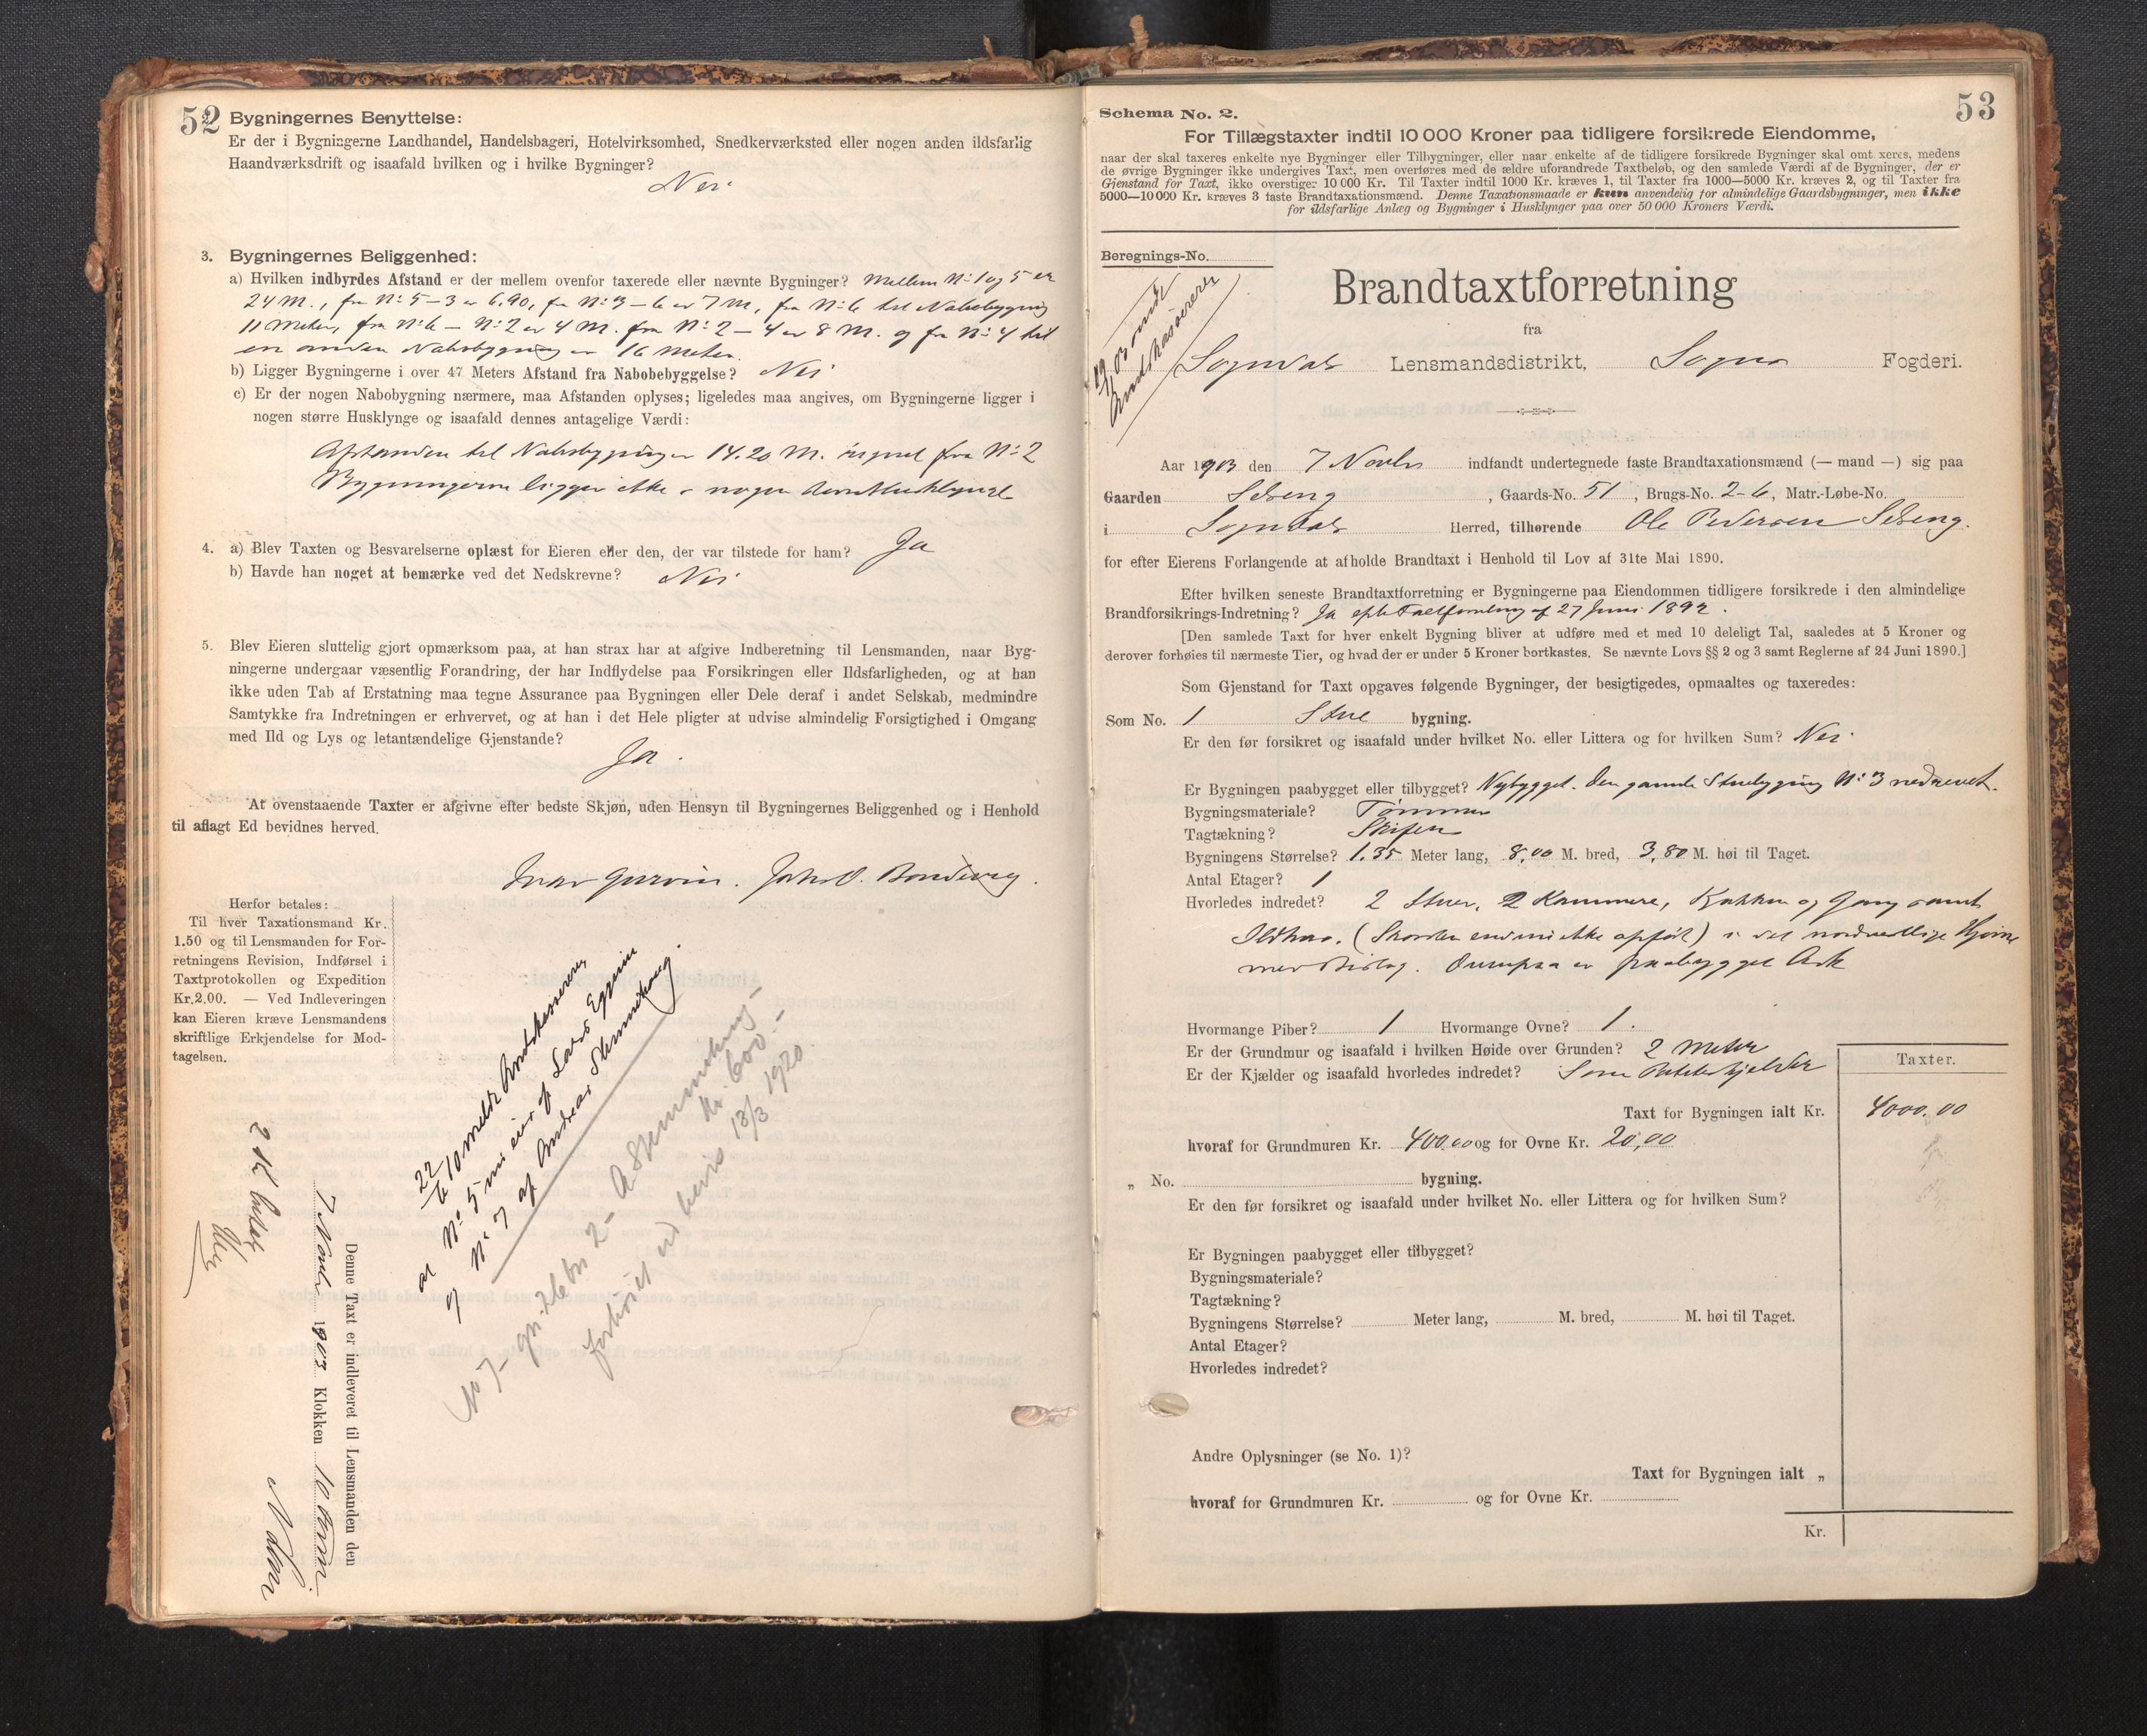 52
Bygningernes Benyttelse:
Er der i Bygningerne Landhandel, Handelsbageri, Hotelvirksomhed, Snedkerværksted eller nogen anden ildsfarlig
Haandværksdrift og isaafald hvilken og i hvilke Bygninger?
Nei
3. Bygningernes Beliggenhed:
a) Hvilken indbyrdes Afstand er der mellem ovenfor taxerede eller nævnte Bygninger? Mellem No 1 og 5 er
24 M., fra No 5-3 er 6.90, fra No 3-6 er 7 M, fra No 6 til Nabobygning
11 Meter, fra No 6 - No 2 er 4 M. fra No 2-4 er 8 M. og fra No 4 til
en anden Nabobygning er 16 Meter.
b) Ligger Bygningerne i over 47 Meters Afstand fra Nabobebyggelse? Nei
c) Er der nogen Nabobygning nærmere, maa Afstanden oplyses; ligeledes maa angives, om Bygningerne ligger i
nogen større Husklynge og isaafald dennes antagelige Værdi:
Afstanden til Nabobygning er 14.20 M. regnet fra No 2
Bygningerne ligger ikke i nogen
4. a) Blev Taxten og Besvarelserne oplæst for Eieren eller den, der var tilstede for ham? Ja
b) Havde han noget at bemærke ved det Nedskrevne? Nei
5. Blev Eieren sluttelig gjort opmærksom paa, at han strax har at afgive Indberetning til Lensmanden, naar Byg-
ningerne undergaar væsentlig Forandring, der har Indflydelse paa Forsikringen eller Ildsfarligheden, og at han
ikke uden Tab af Erstatning maa tegne Assurance paa Bygningen eller Dele deraf i andet Selskab, medmindre
Samtykke fra Indretningen er erhvervet, og at han i det Hele pligter at udvise almindelig Forsigtighed i Omgang
med Ild og Lys og letantændelige Gjenstande?
Ja.
At ovenstaaende Taxter er afgivne efter bedste Skjøn, uden Hensyn til Bygningernes Beliggenhed og i Henhold
til aflagt Ed bevidnes herved.
Ivar Gurvin. Johs O. Bondevig.
Herfor betales:
Til hver Taxationsmand Kr.
1.50 og til Lensmanden for For-
retningens Revision, Indførsel i
Taxtprotokollen og Expedition
Kr. 2.00. — Ved Indleveringen
kan Eieren kræve Lensmandens
skriftlige Erkjendelse for Mod-
tagelsen.
22/6 10 meldt Brandkasserer
at No 5 nu eies af Lars
og No 7 af Andreas
forhøiet ved bevis 13/3 1920
2 K betalt
Denne Taxt er indleveret til Lensmanden den
7 Novbr 1903 Klokken 10
53
Schema No. 2.
For Tillægstaxter indtil 10 000 Kroner paa tidligere forsikrede Eiendomme,
naar der skal taxeres enkelte nye Bygninger eller Tilbygninger, eller naar enkelte af de tidligere forsikrede Bygninger skal omtaxeres, medens
de øvrige Bygninger ikke undergives Taxt, men overføres med de ældre uforandrede Taxtbeløb, og den samlede Værdi af de Bygninger, der er
Gjenstand for Taxt, ikke overstiger 10 000 Kr. Til Taxter indtil 1000 Kr. kræves 1, til Taxter fra 1000—5000 Kr. kræves 2, og til Taxter fra
5000—10 000 Kr. kræves 3 faste Brandtaxationsmænd. Denne Taxationsmaade er kun anvendelig for almindelige Gaardsbygninger, men ikke
for ildsfarlige Anlæg og Bygninger i Husklynger paa over 50 000 Kroners Værdi.
Beregnings-No.
Brandtaxtforretning
fra
Sogndal Lensmandsdistrikt, Sogns Fogderi.
Aar 1903 den 7 Novbr indfandt undertegnede faste Brandtaxationsmænd (— mand —) sig paa
Gaarden Selseng, Gaards-No. 51, Brugs-No. 2-6, Matr.-Løbe-No.
i Sogndal Herred, tilhørende Ole Pedersen Selseng.
for efter Eierens Forlangende at afholde Brandtaxt i Henhold til Lov af 31te Mai 1890.
Efter hvilken seneste Brandtaxtforretning er Bygningerne paa Eiendommen tidligere forsikrede i den almindelige
Brandforsikrings-Indretning? Ja efter Taxtforretning af 27 Juni 1892.
[Den samlede Taxt for hver enkelt Bygning bliver at udføre med et med 10 deleligt Tal, saaledes at 5 Kroner og
derover forhøies til nærmeste Tier, og hvad der er under 5 Kroner bortkastes. Se nævnte Lovs §§ 2 og 3 samt Reglerne af 24 Juni 1890.]
Som Gjenstand for Taxt opgaves følgende Bygninger, der besigtigedes, opmaaltes og taxeredes:
Som No. 1 Stue bygning.
Er den før forsikret og isaafald under hvilket No. eller Littera og for hvilken Sum? Nei
Er Bygningen paabygget eller tilbygget? Nybygget. Den gamle Stuebygning No 3 nedrevet.
Bygningsmateriale? Tømmer
Tagtækning? Skifer
Bygningens Størrelse? 1.35 Meter lang, 8,00 M. bred, 3,80 M. høi til Taget.
Antal Etager? 1
Hvorledes indredet? 2 Stuer, 2 Kammere, Kjøkken og Gang samt
Ildhus. (Skorsten endnu ikke opført) i det nordvestlige Hjørne
med Bislag. Ovenpaa er paabygget Ark
Hvormange Piber? 1 Hvormange Ovne? 1.
Er der Grundmur og isaafald i hvilken Høide over Grunden? 2 Meter
Er der Kjælder og isaafald hvorledes indredet? Som Potetkjelder
Taxter.
Taxt for Bygningen ialt Kr. 4000.00
hvoraf for Grundmuren Kr. 400.00 og for Ovne Kr. 20,00
„ No. bygning.
Er den før forsikret og isaafald under hvilket No. eller Littera og for hvilken Sum?
Er Bygningen paabygget eller tilbygget?
Bygningsmateriale?
Tagtækning?
Bygningens Størrelse? Meter lang, M. bred, M. høi til Taget.
Antal Etager?
Hvorledes indredet?
Andre Oplysninger (se No. 1)?
Taxt for Bygningen ialt „
hvoraf for Grundmuren Kr. og for Ovne Kr.
Kr.